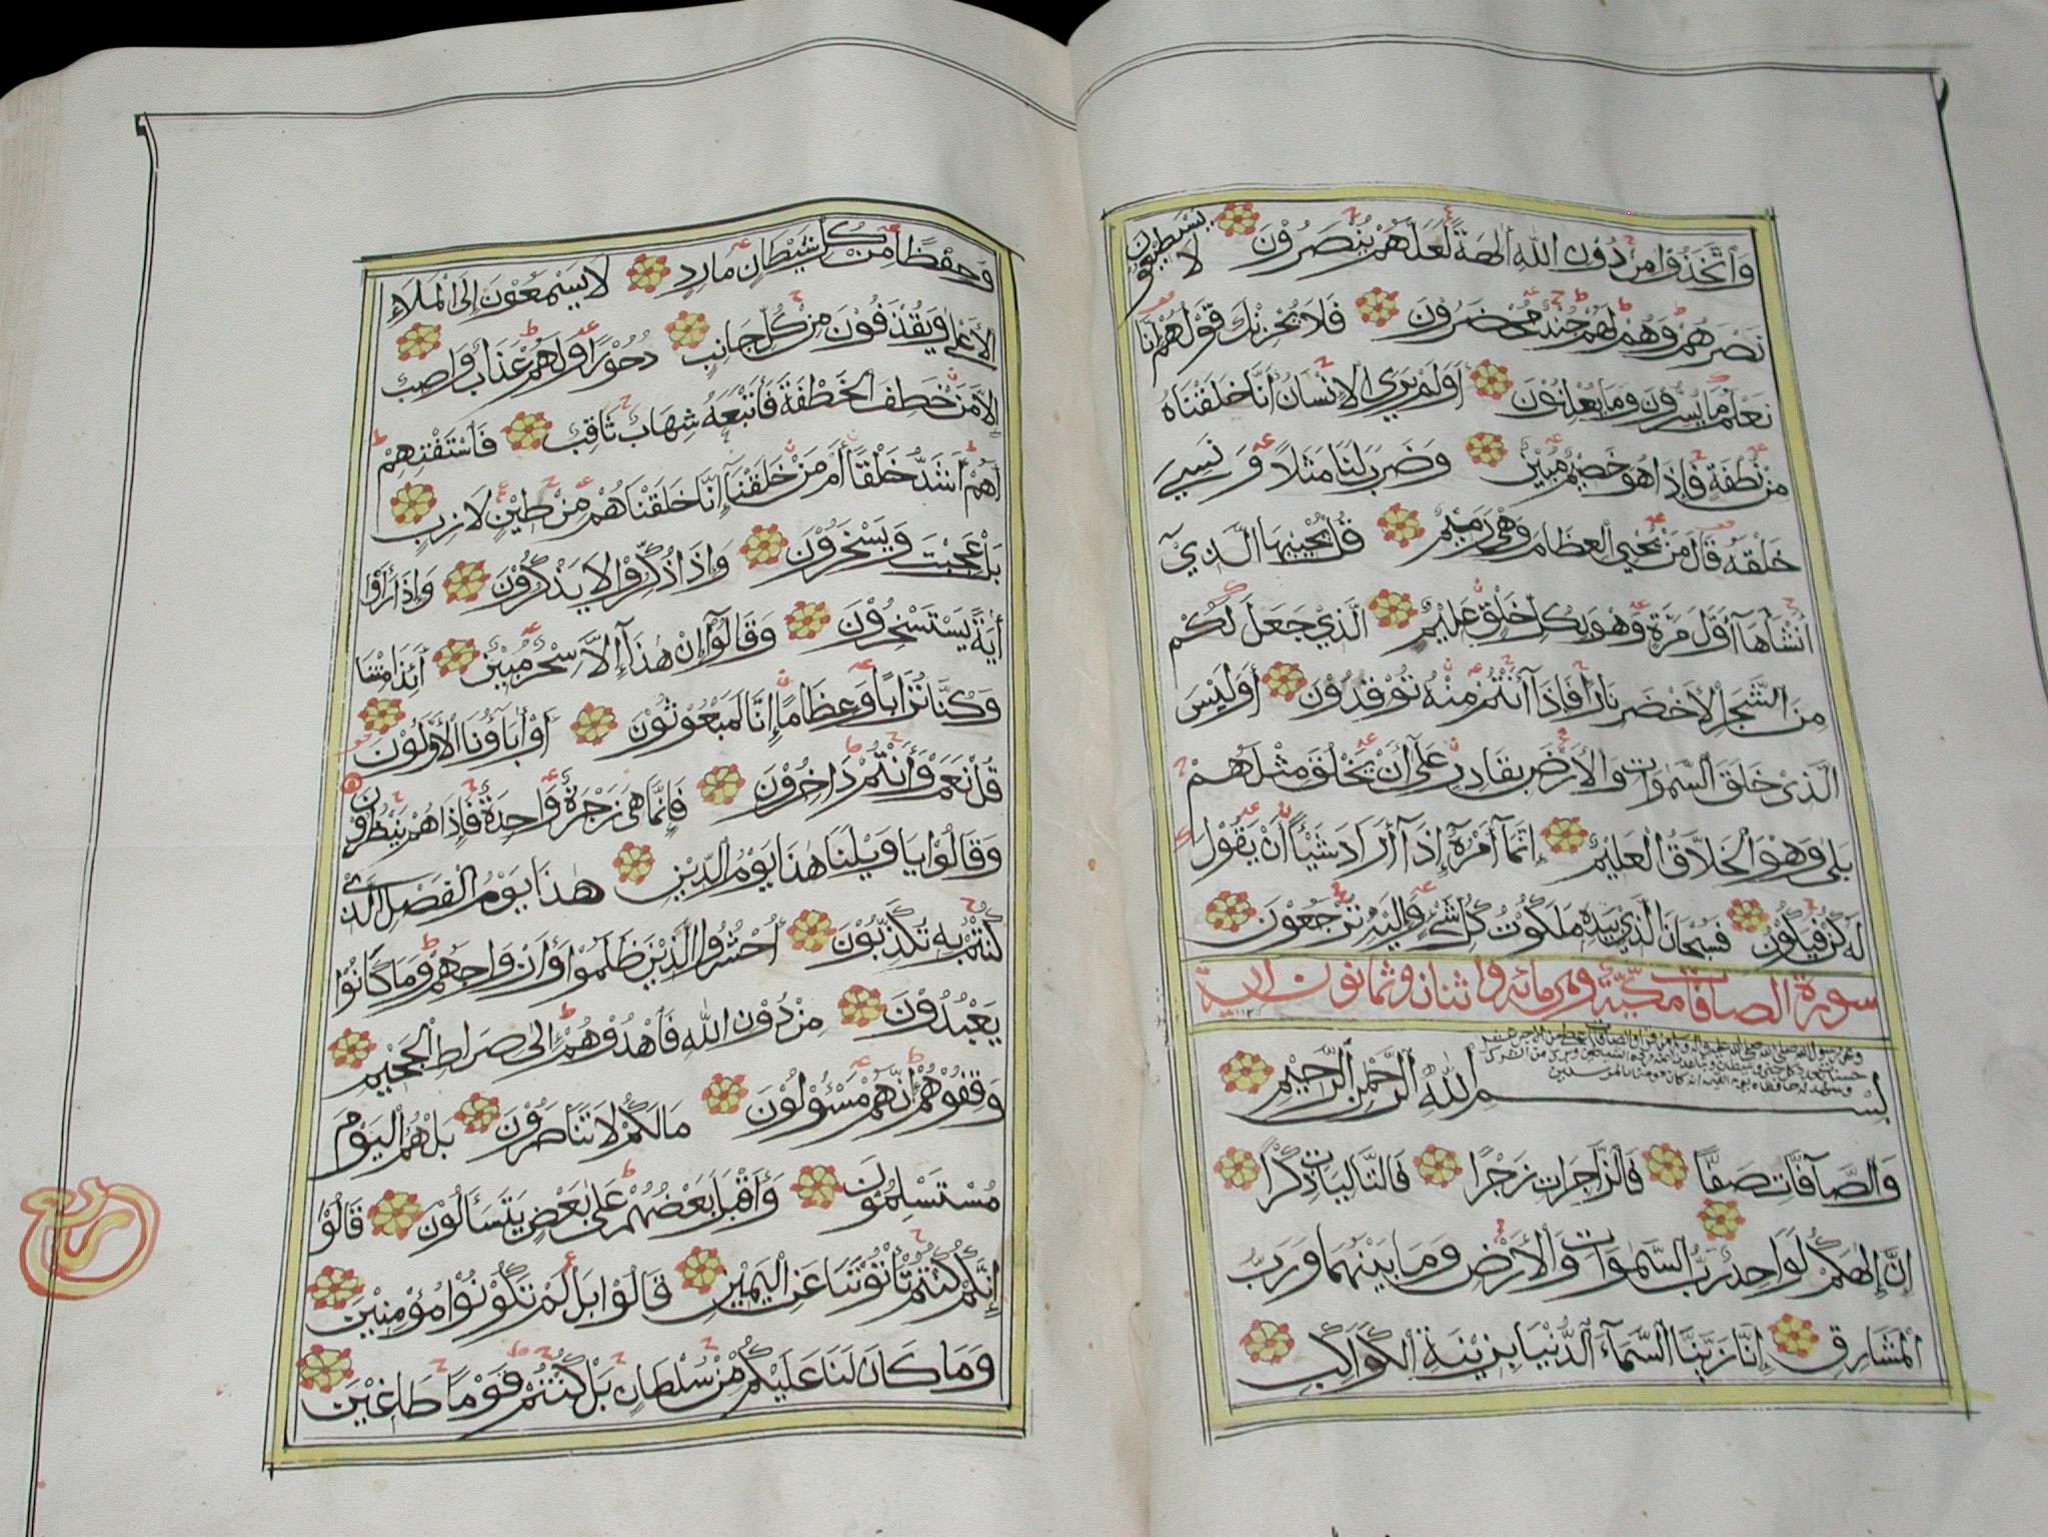 وَاتَّخَذُوا مِنْ دُونِ اللّٰهِ اٰلِهَةً لَعَلَّهُمْ يُنْصَرُونَ لَا يَسْتَطِيعُونَ
نَصْرَهُمْ وَهُمْ لَهُمْ جُنْدٌ مُحْضَرُونَ فَلَا يَحْزُنْكَ قَوْلُهُمْ إِنَّا
نَعْلَمُ مَا يُسِرُّونَ وَمَا يُعْلِنُونَ أَوَلَمْ يَرَى الْإِنْسَانُ أَنَّا خَلَقْنَاهُ
مِنْ نُطْفَةٍ فَإِذَا هُوَ خَصِيمٌ مُبِينٌ وَضَرَبَ لَنَا مَثَلًا وَنَسِيَ
خَلْقَهُ قَالَ مَنْ يُحْيِي الْعِظَامَ وَهْيَ رَمِيمٌ قُلْ يُحْيِيهَا الَّذِي
أَنْشَأَهَا أَوَّلَ مَرَّةٍ وَهْوَ بِكُلِّ خَلْقٍ عَلِيمٌ الَّذِي جَعَلَ لَكُمْ
مِنَ الشَّجَرِ الْأَخْضَرِ نَارًا فَإِذَا أَنْتُمْ مِنْهُ تُوقِدُونَ أَوَلَيْسَ
الَّذِي خَلَقَ السَّمٰوَاتِ وَالْأَرْضَ بِقَادِرٍ عَلَى أَنْ يَخْلُقَ مِثْلَهُمْ
بَلَى وَهْوَ الْخَلَّاقُ الْعَلِيمُ إِنَّمَا أَمْرُهُ إِذَا أَرَادَ شَيْئًا أَنْ يَقُولَ
لَهُ كُنْ فَيَكُونُ فَسُبْحَانَ الَّذِي بِيَدِهِ مَلَكُوتُ كُلِّ شَيْءٍ وَإِلَيْهِ تُرْجَعُونَ
سورة الصافات مكيّة وهي مائه واثنان وثمانون اية
بِسْمِ اللّٰهِ الرَّحْمٰنِ الرَّحِيمِ
وَالصَّآفَّاتِ صَفًّا فَالزَّاجِرَاتِ زَجْرًا فَالتَّالِيَاتِ ذِكْرًا
إِنَّ إِلٰهَكُمْ لَوَاحِدٌ رَبُّ السَّمٰوَاتِ وَالْأَرْضِ وَمَا بَيْنَهُمَا وَرَبُّ
الْمَشَارِقِ إِنَّا زَيَّنَّا السَّمَآءَ الدُّنْيَا بِزِينَةِ الْكَوَاكِبِ
وَحِفْظًا مِنْ كُلِّ شَيْطَانٍ مَارِدٍ لَا يَسْمَعُونَ إِلَى الْمَلَاءِ
الْأَعْلَى وَيُقْذَفُونَ مِنْ كُلِّ جَانِبٍ دُحُورًا وَلَهُمْ عَذَابٌ وَاصِبٌ
إِلَّا مَنْ خَطِفَ الْخَطْفَةَ فَأَتْبَعَهُ شِهَابٌ ثَاقِبٌ فَاسْتَفْتِهِمْ
أَهُمْ أَشَدُّ خَلْقًا أَمْ مَنْ خَلَقْنَا إِنَّا خَلَقْنَاهُمْ مِنْ طِينٍ لَازِبٍ
بَلْ عَجِبْتَ وَيَسْخَرُونَ وَإِذَا ذُكِّرُوا لَا يَذْكُرُونَ وَإِذَا رَأَوْا
اٰيَةً يَسْتَسْخِرُونَ وَقَالُوا إِنْ هٰذَا إِلَّا سِحْرٌ مُبِينٌ أَئِذَا مِتْنَا
وَكُنَّا تُرَابًا وَعِظَامًا إِنَّا لَمَبْعُوثُونَ أَوْ اٰبَاؤُنَا الْأَوَّلُونَ
قُلْ نَعَمْ وَأَنْتُمْ دَاخِرُونَ فَإِنَّمَا هِيَ زَجْرَةٌ وَاحِدَةٌ فَإِذَا هُمْ يَنْظُرُونَ
وَقَالُوا يَا وَيْلَنَا هٰذَا يَوْمُ الدِّينِ هٰذَا يَوْمُ الْفَصْلِ الَّذِي
كُنْتُمْ بِهِ تُكَذِّبُونَ اُحْشُرُوا الَّذِينَ ظَلَمُوا وَأَزْوَاجَهُمْ وَمَا كَانُوا
يَعْبُدُونَ مِنْ دُونِ اللّٰهِ فَاهْدُوهُمْ إِلَى صِرَاطِ الْجَحِيمِ
وَقِفُوهُمْ إِنَّهُمْ مَسْؤُلُونَ مَا لَكُمْ لَا تَنَاصَرُونَ بَلْ هُمُ الْيَوْمَ
مُسْتَسْلِمُونَ وَأَقْبَلَ بَعْضُهُمْ عَلَى بَعْضٍ يَتَسَآءَلُونَ قَالُوا
إِنَّكُمْ كُنْتُمْ تَأْتُونَنَا عَنِ الْيَمِينِ قَالُوا بَلْ لَمْ تَكُونُوا مُؤْمِنِينَ
وَمَا كَانَ لَنَا عَلَيْكُمْ مِنْ سُلْطَانٍ بَلْ كُنْتُمْ قَوْمًا طَاغِينَ